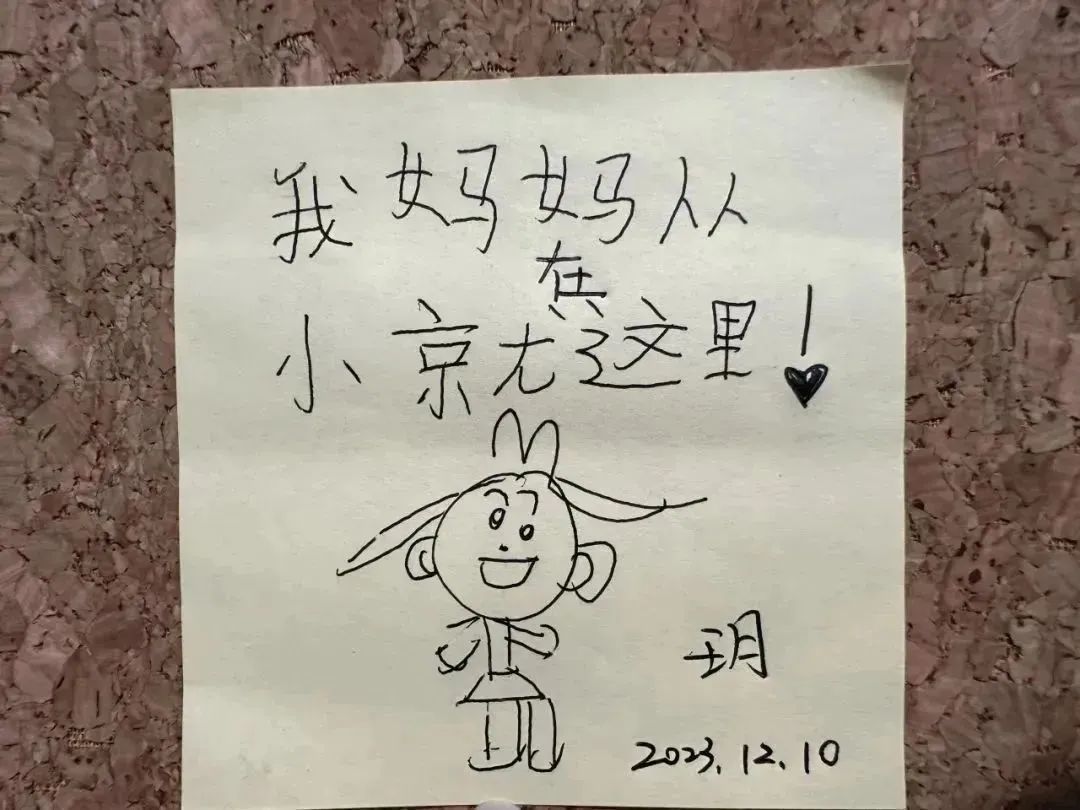 我妈妈从
小就在这里！♥
玥
2023.12.10